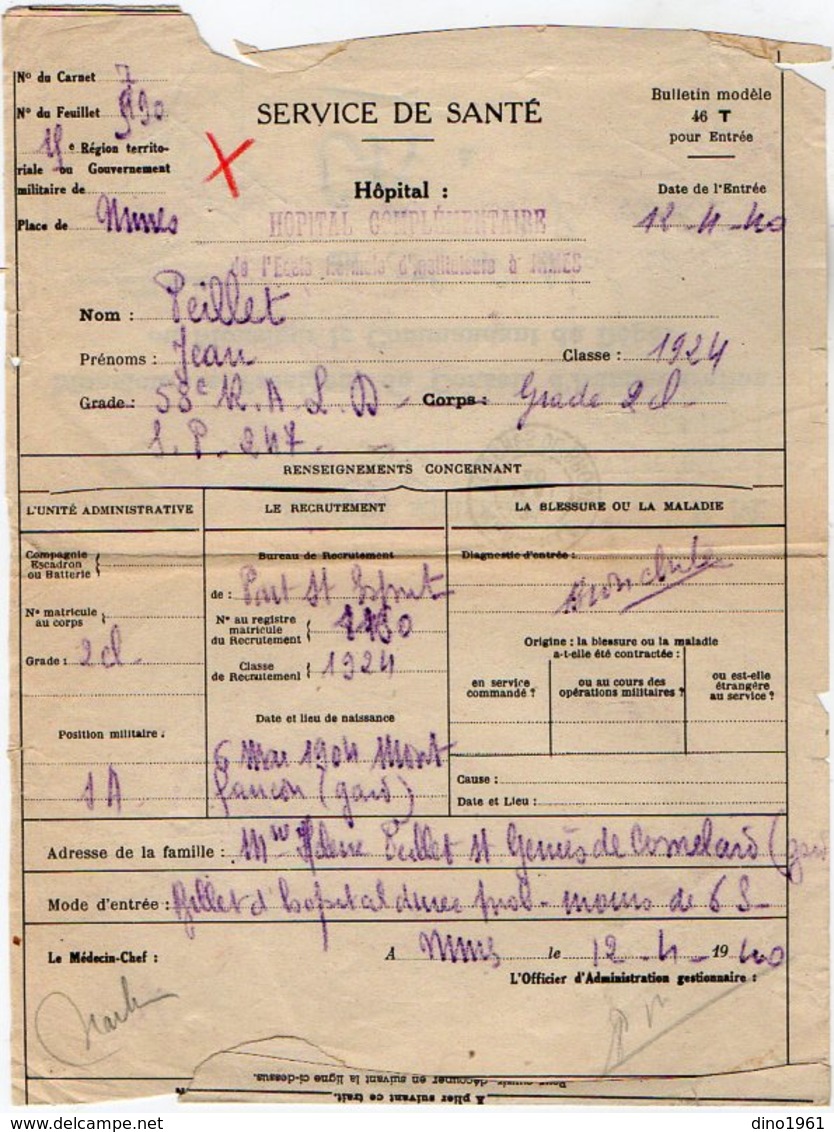 N° du Carnet 7
N° du Feuillet 990
15e Région territo-
riale ou Gouvernement
militaire de
Place de Nimes
SERVICE DE SANTÉ
Hôpital :
HOPITAL COMPLÉMENTAIRE
de l'Ecole Normale d'Instituteurs à NIMES
Bulletin modèle
46 T
pour Entrée
Date de l'Entrée
12-4-40
Nom : Peillet
Prénoms : Jean Classe : 1924
Grade : 58e R.A.L.D- Corps : Grade 2cl-
S.P. 247.
RENSEIGNEMENTS CONCERNANT
L'UNITÉ ADMINISTRATIVE
Compagnie
Escadron
ou Batterie
N° matricule
au corps
Grade : 2cl-
Position militaire :
SA
LE RECRUTEMENT
Bureau de Recrutement
de : Pont St Esprit
N° au registre
matricule
du Recrutement
Classe
de Recrutement 1924
Date et lieu de naissance
6 Mai 1904 Mont
faucon (gard)
LA BLESSURE OU LA MALADIE
Diagnostic d'entrée :
Bronchite
Origine : la blessure ou la maladie
a-t-elle été contractée :
en service
commandé ?
ou au cours des
opérations militaires ?
ou est-elle
étrangère
au service ?
Cause :
Date et Lieu :
Adresse de la famille : Helene Peillet St Geniès de Comelard (gard
Mode d'entrée : Billet d'hopital moins de 6
Le Médecin-Chef :
A Nimes le 12-4-1940
L'Officier d'Administration gestionnaire :
Pour ouvrir, découper en suivant la ligne ci-dessus.
A plier suivant ce trait.
dino1961